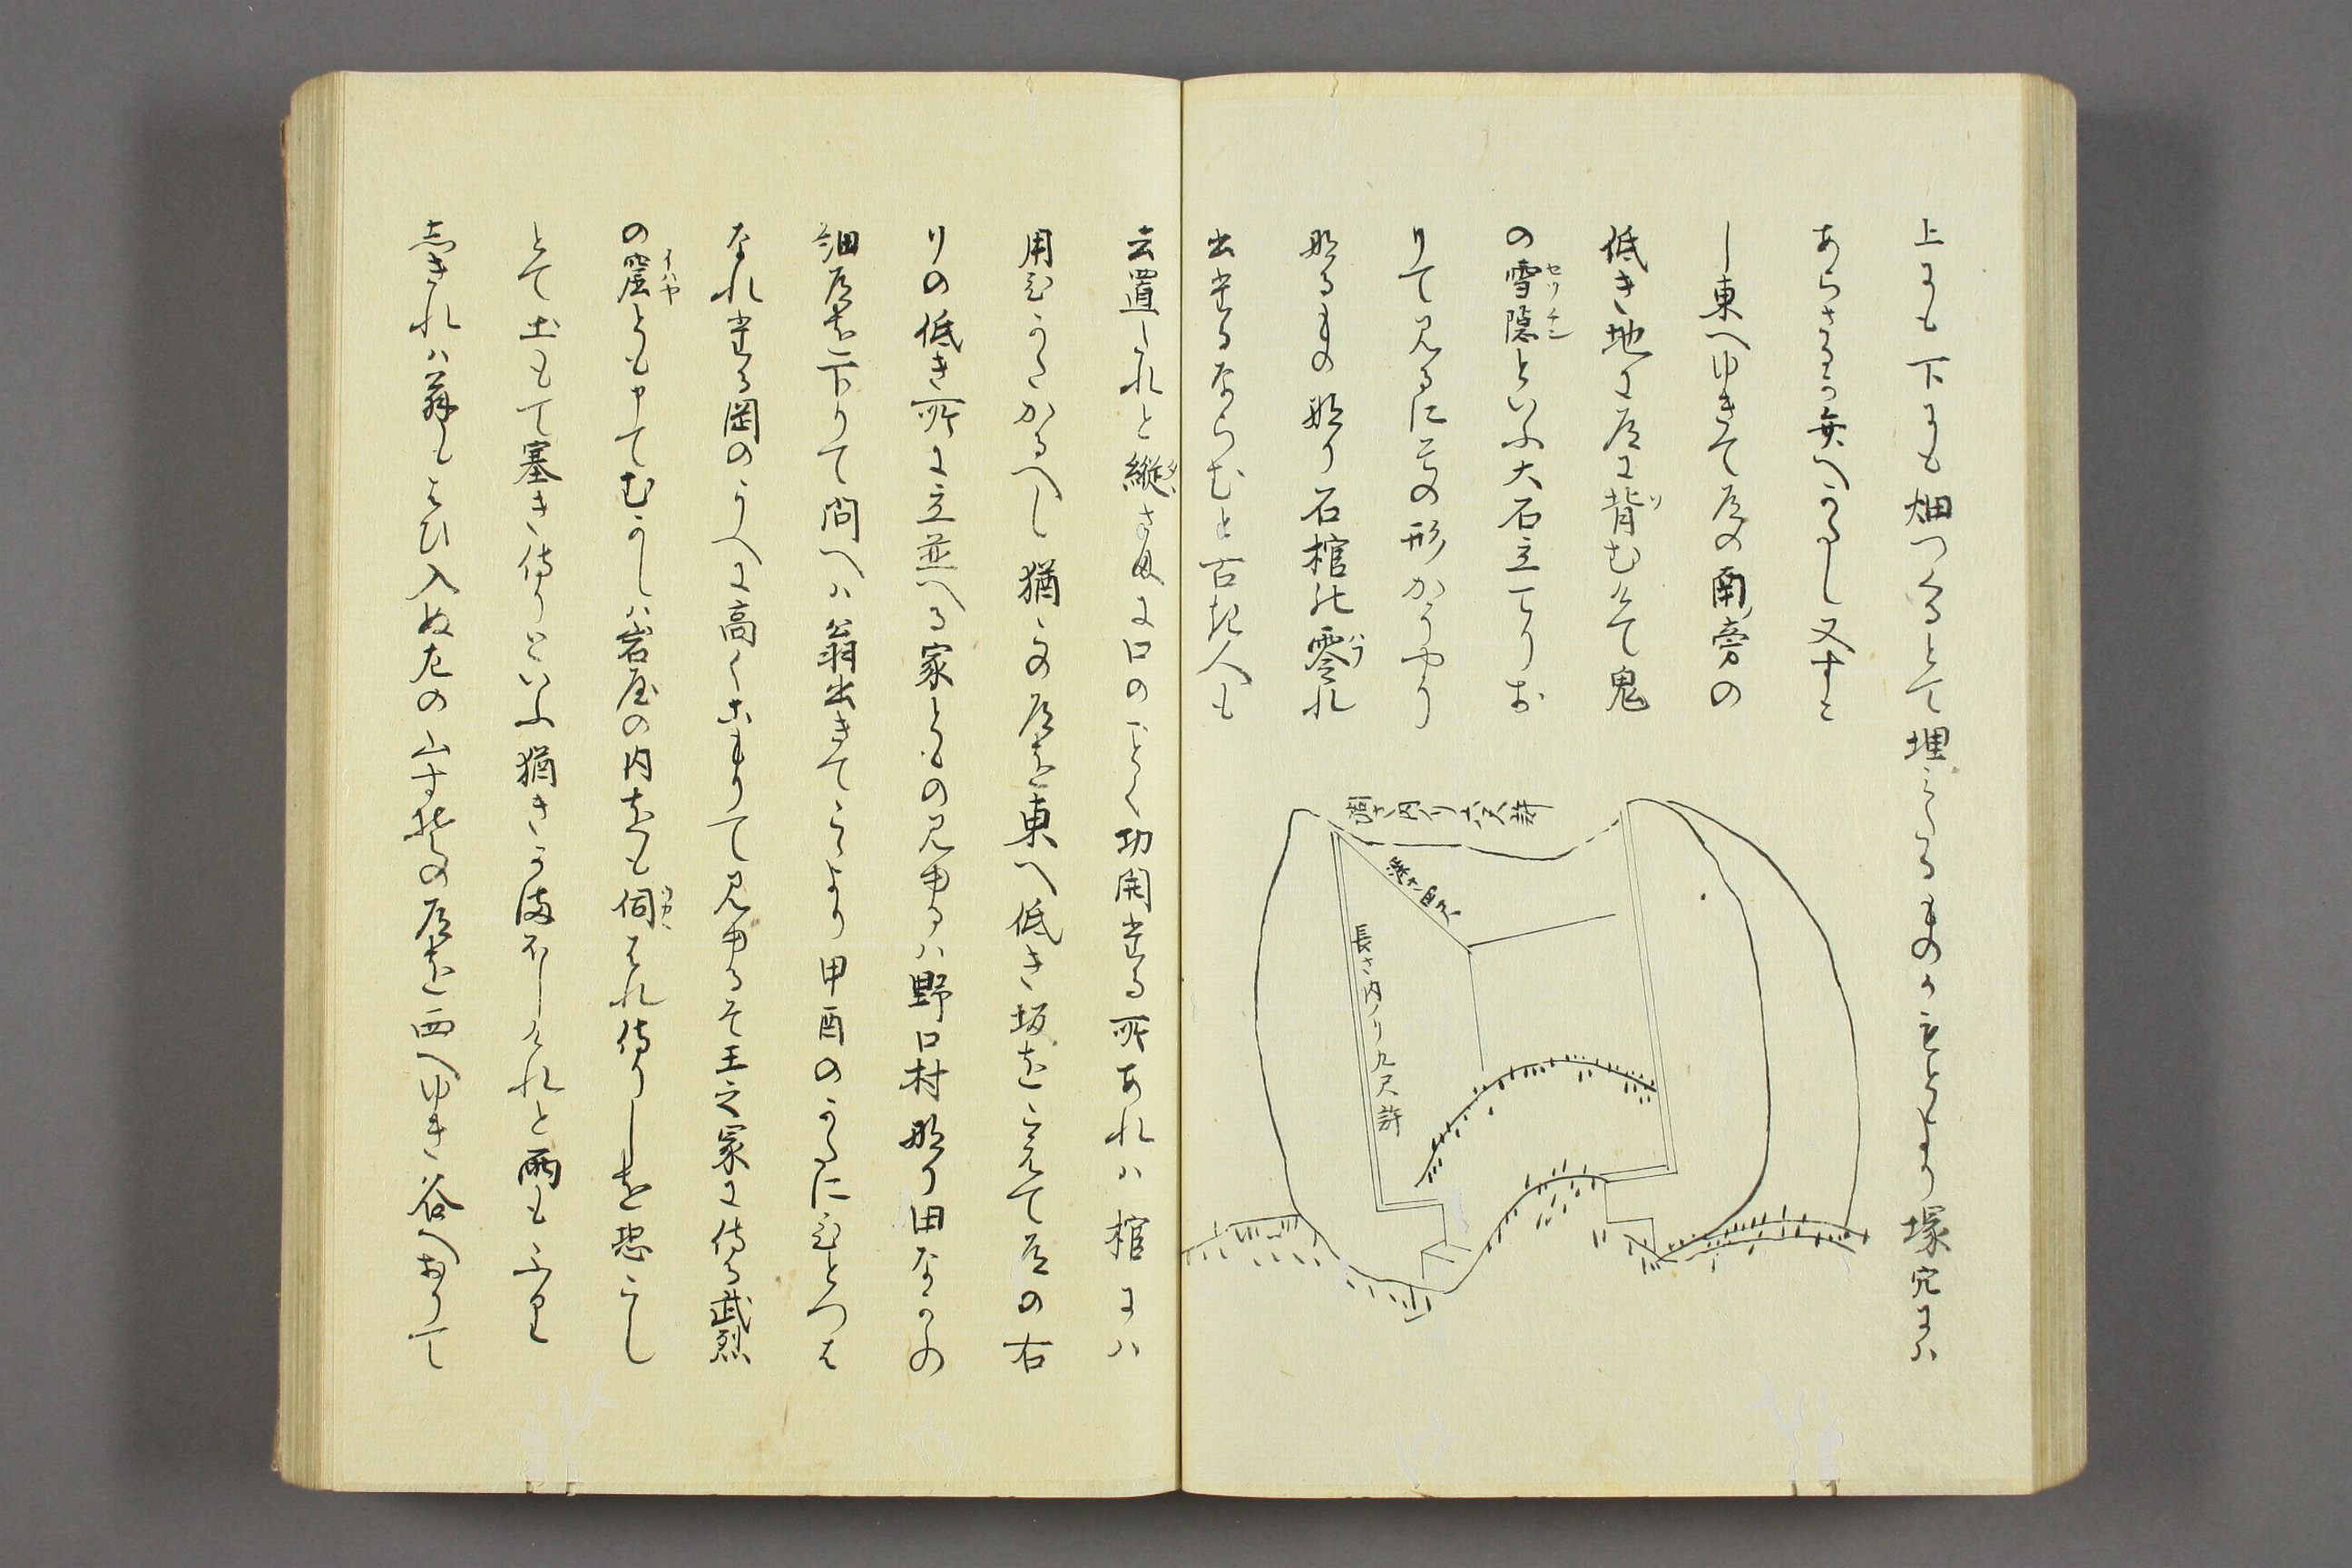 上にも下にも畑つくるとて埋みたるものかもとより塚穴には
あらさるか弁へかたし又すこ
し東へゆきて道の南旁の
低き地に道に背むけて鬼
の雪隠といふ大石立てりお
りて見るに其の形かうやう
なるものなり石棺の零れ
出たるならむと古き人も
云置しれと縦さまに口のことく切開たる所あれは棺には
用ひかたかるへし猶この道を東へ低き坂をこえて道の右
りの低き所に立並へる家ともの見ゆるは野口村なり田なかの
細道を下りて問へは翁出きてこゝより申酉のかたにひとつは
なれたる岡のうへに高くこもりて見ゆるそ王之冢に侍る武烈
の窟とも申てむかしは岩屋の内をも伺はれ侍りしを恐こし
とて土もて塞き侍りといふ猶きかまほしけれと雨もふり
志きれは翁もはひ入ぬ左の山すそなる道を西へゆき谷へおりて
セツチン
イハヤ
濶さ内ノリ六尺許
深さ四尺
長さ内ノリ九尺許